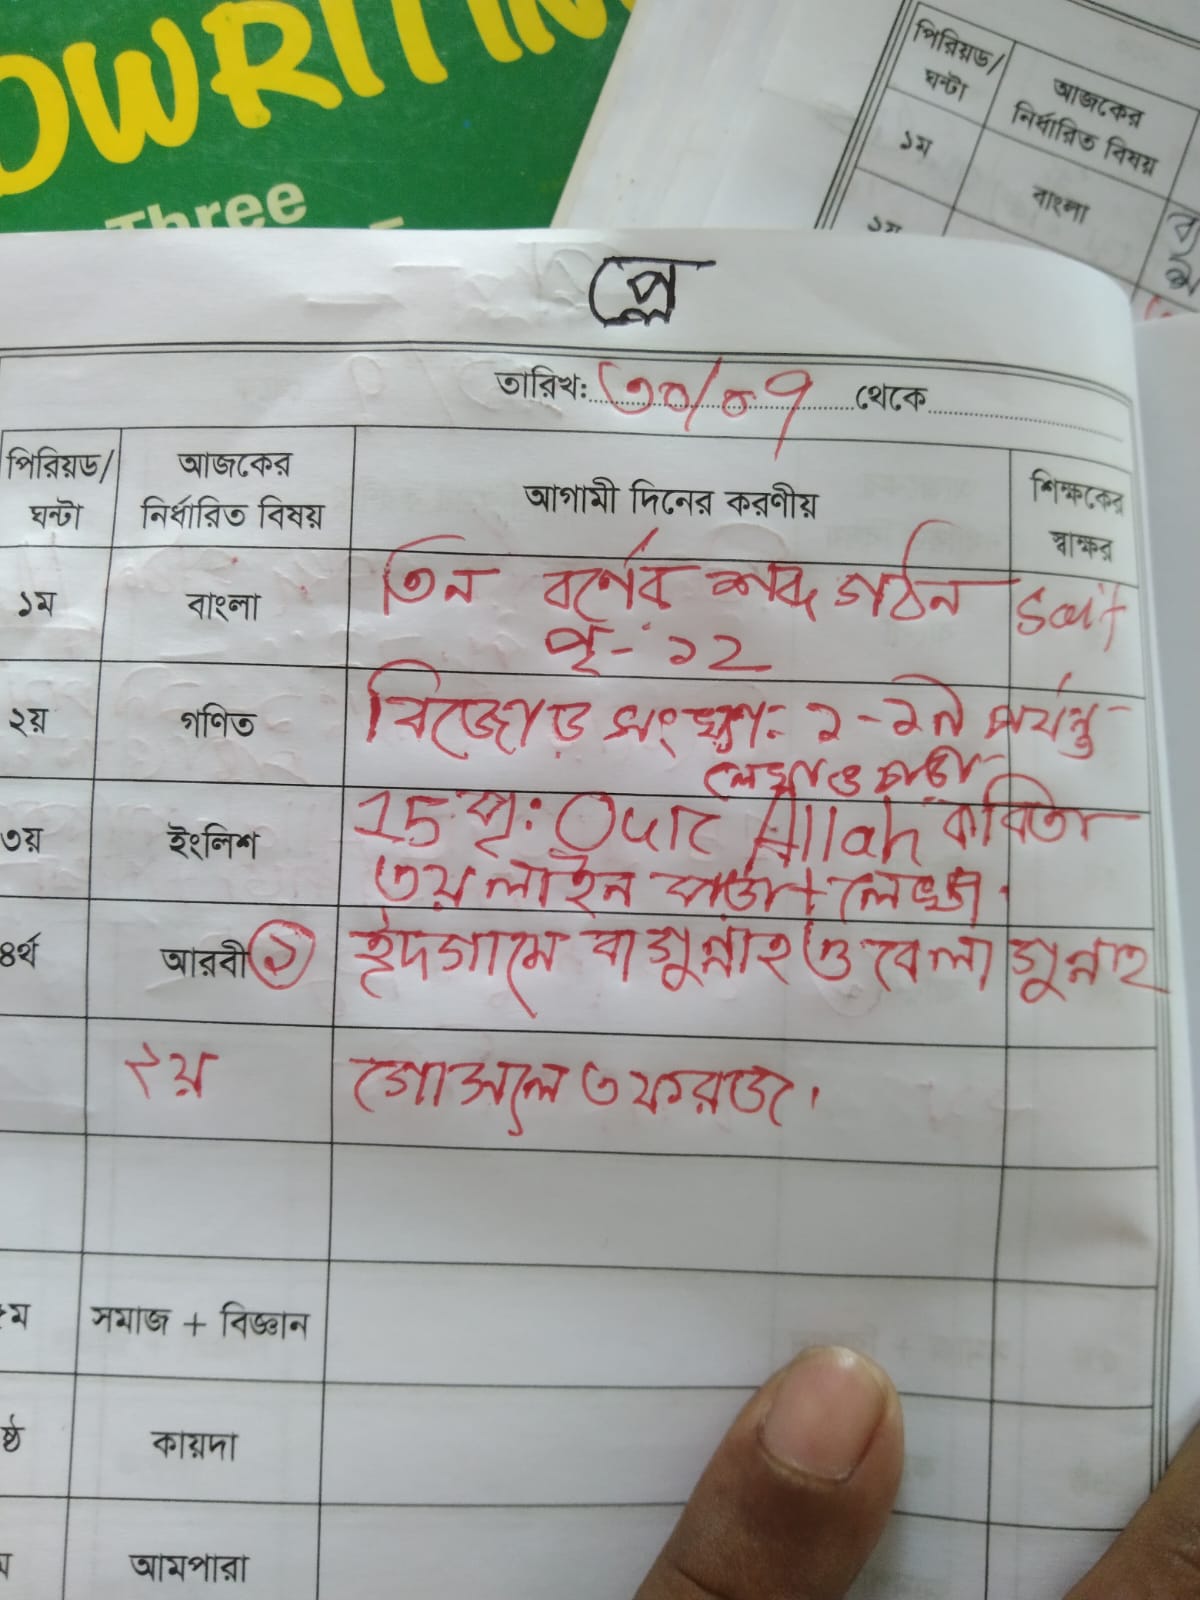 Three
পিরিয়ড/
ঘন্টা
আজকের
নির্ধারিত বিষয়
১ম
বাংলা
প্লে
তারিখ: ৩০/০৭ থেকে
পিরিয়ড/
ঘন্টা
আজকের
নির্ধারিত বিষয়
আগামী দিনের করণীয়
শিক্ষকের
স্বাক্ষর
১ম বাংলা তিন বর্ণের শব্দ গঠন Saif
পৃ- ১২
২য় গণিত বিজোড় সংখ্যা: ১-১৯ পর্যন্ত
লেখা ও পড়া
৩য় ইংলিশ 15 পৃ: Our Allah কবিতা
৩য় লাইন পড়া + লেখা।
৪র্থ আরবী ১ ইদগামে বা গুন্নাহ ও বেলা গুন্নাহ
২য় গোসলে ৩ ফরজ।
সমাজ + বিজ্ঞান
কায়দা
আমপারা